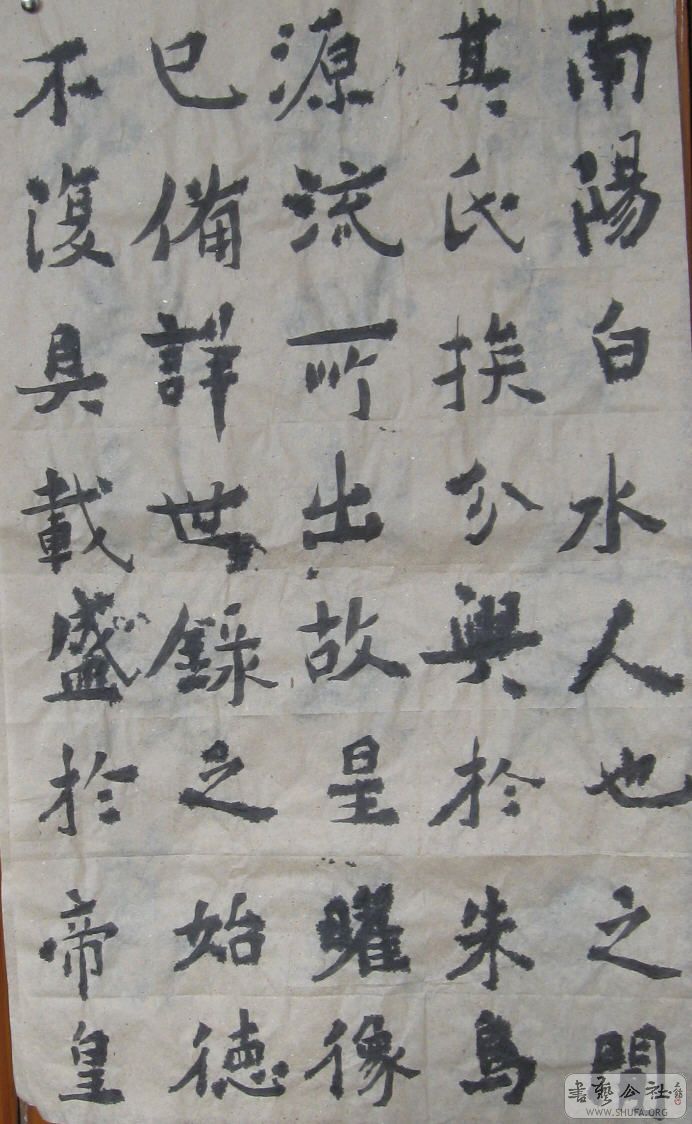 南陽白水人也之間
其氏挨分興於朱鳥
源流所出故星曜像
已備詳世錄之始德
不復具載盛於帝皇
書藝公社
WWW.SHUFA.ORG